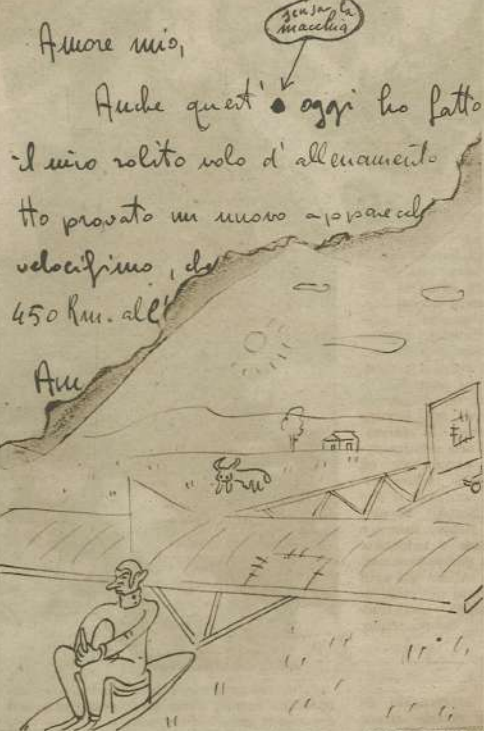 senza la
macchia
Amore mio,
Anche quest' oggi ho fatto
il mio solito volo d'allenamento
Ho provato un nuovo apparecch
velocissimo, che
450 Km. all'
Am